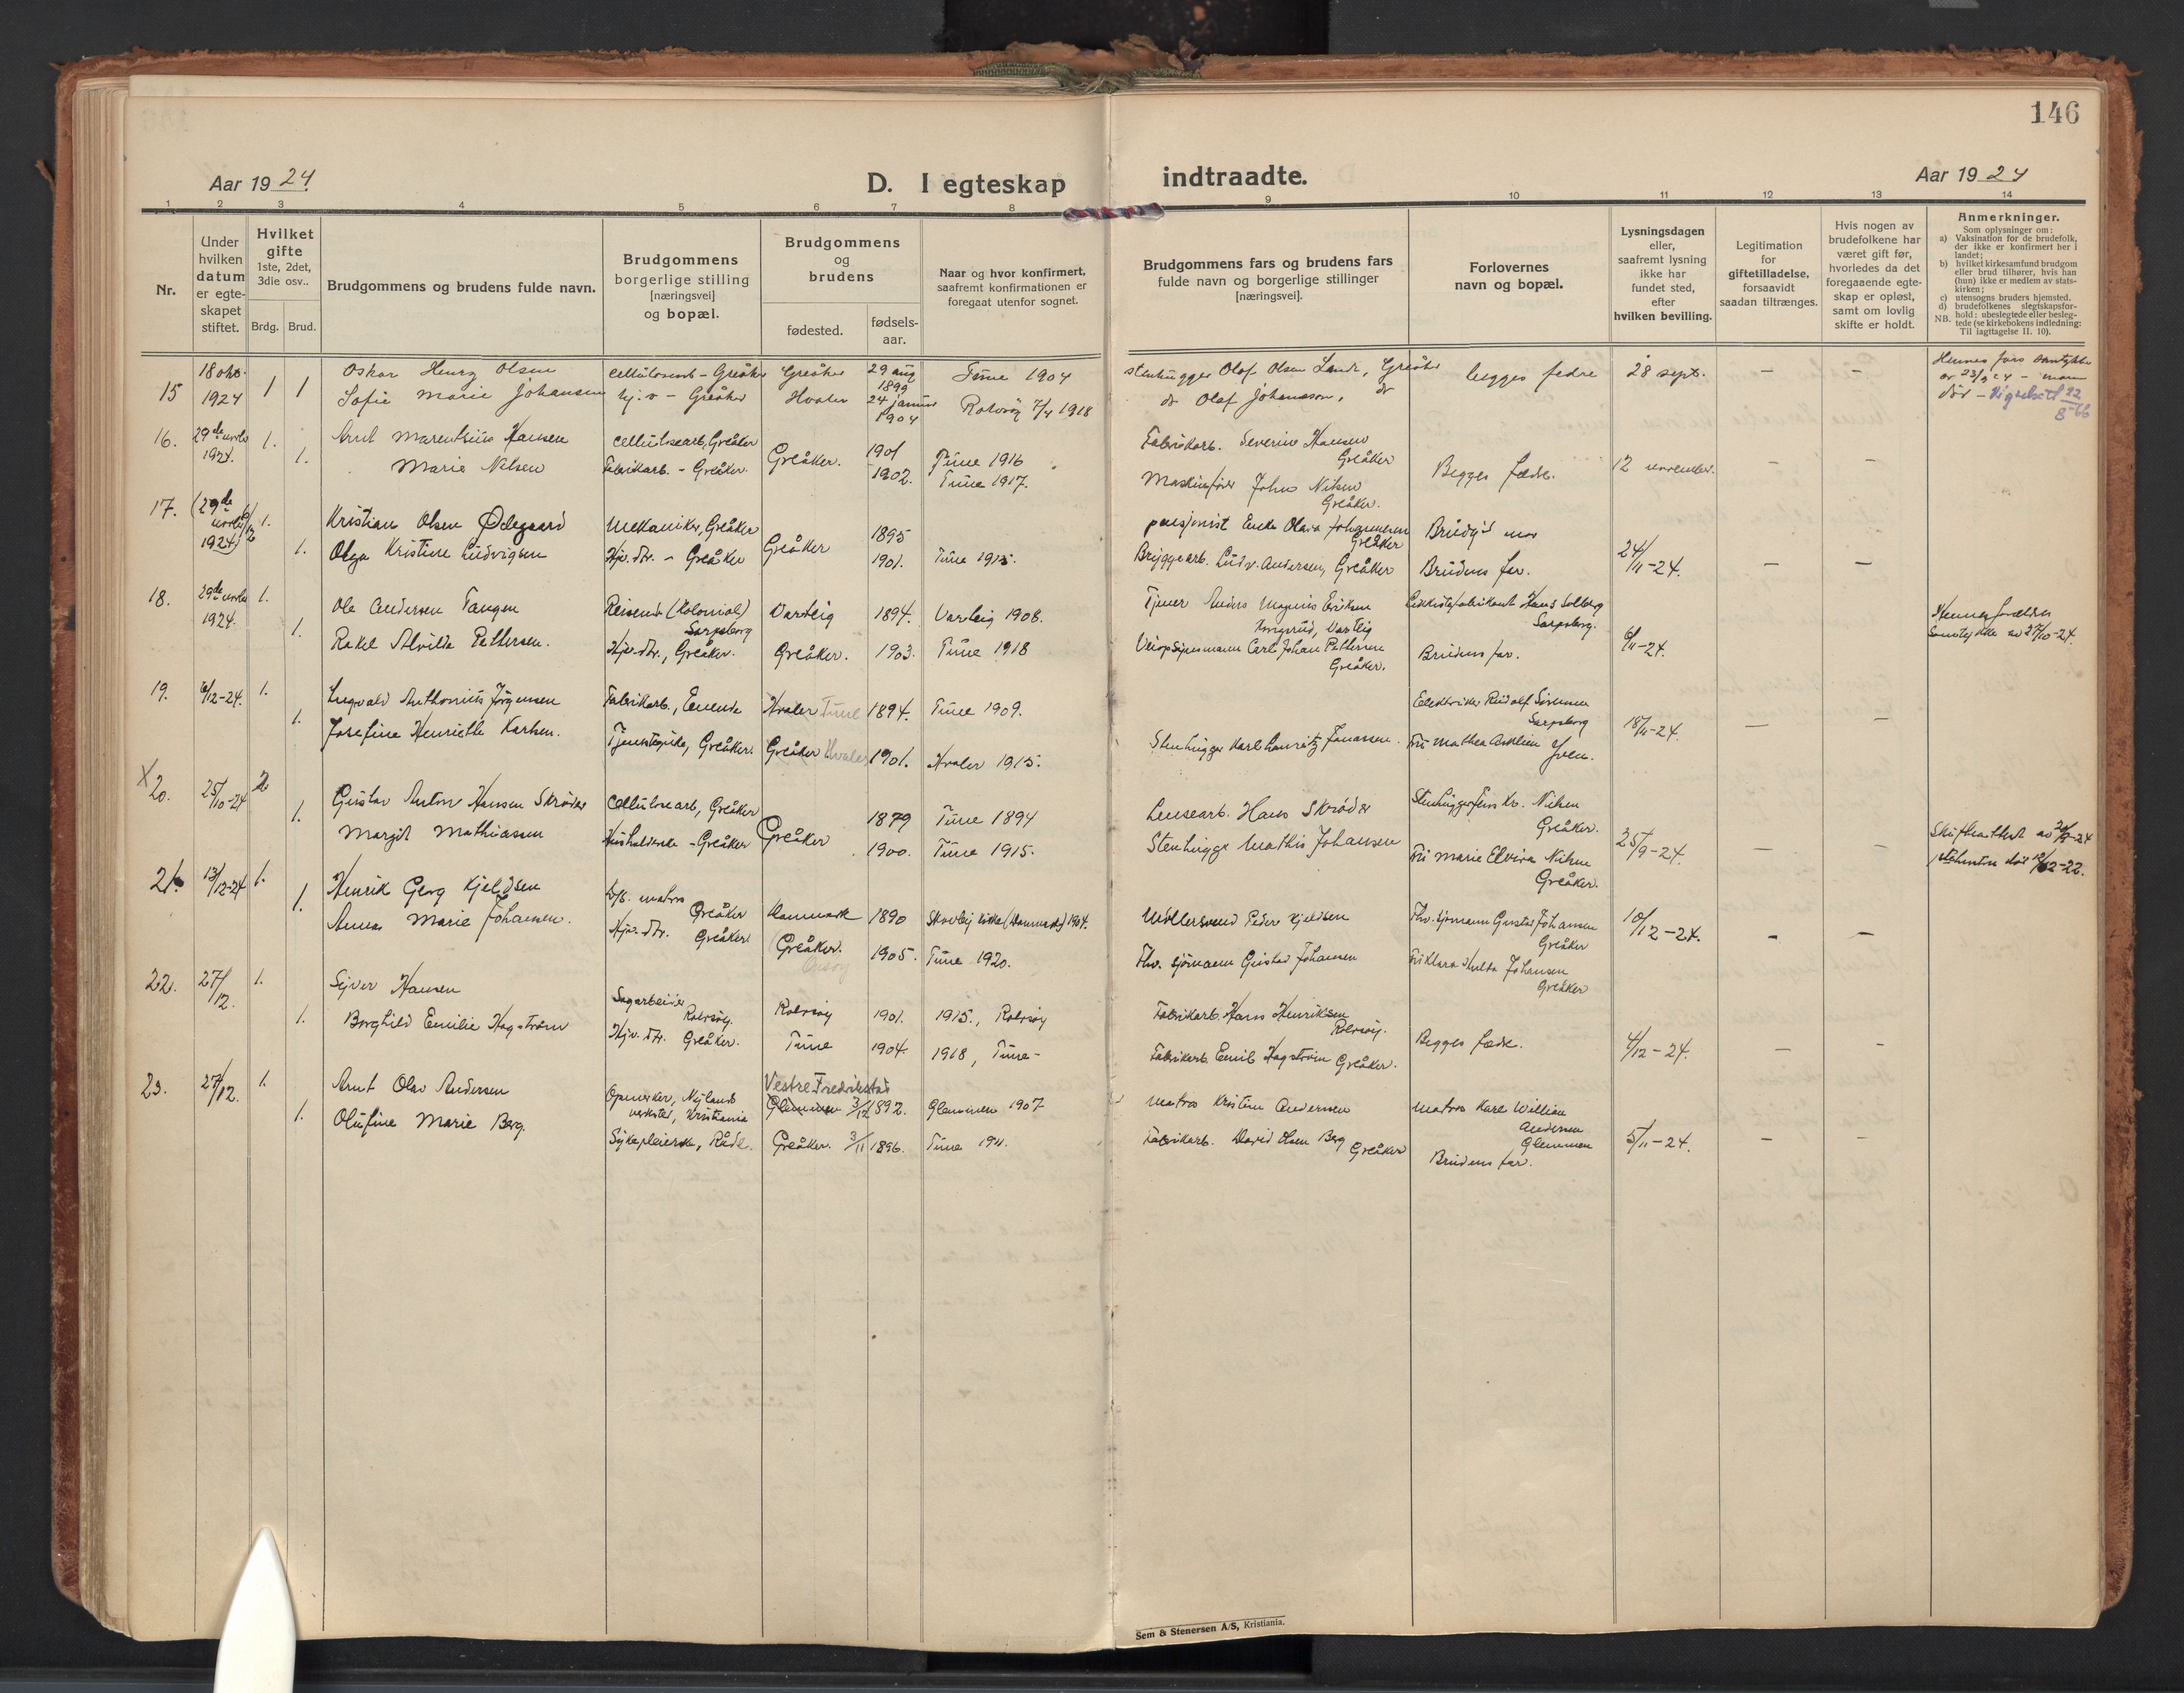 146
Aar 1924
D. I egteskap
indtraadte.
Aar 1924
1 2 3 4 5 6 7 8 9 10 11 12 13 14
Nr.
Under
hvilken
datum
er egte-
skapet
stiftet.
Hvilket
gifte
1ste, 2det,
3die osv..
Brdg. Brud.
Brudgommens og brudens fulde navn.
Brudgommens
borgerlige stilling
[næringsvei]
og bopæl.
Brudgommens
og
brudens
fødested.
fødsels-
aar.
Naar og hvor konfirmert,
saafremt konfirmationen er
foregaat utenfor sognet.
Brudgommens fars og brudens fars
fulde navn og borgerlige stillinger
[næringsvei].
Forlovernes
navn og bopæl.
Lysningsdagen
eller,
saafremt lysning
ikke har
fundet sted,
efter
hvilken bevilling.
Legitimation
for
giftetilladelse,
forsaavidt
saadan tiltrænges.
Hvis nogen av
brudefolkene har
været gift før,
hvorledes da det
foregaaende egte-
skap er opløst,
samt om lovlig
skifte er holdt.
Anmerkninger.
Som oplysninger om:
a) Vaksination for de brudefolk,
der ikke er konfirmert her i
landet;
b) hvilket kirkesamfund brudgom
eller brud tilhører, hvis han
(hun) ikke er medlem av stats-
kirken;
c) utensogns bruders hjemsted.
d) brudefolkenes slegtskapsfor-
hold; ubeslegtede eller besleg-
NB. tede (se kirkebokens indledning:
Til iagttagelse II. 10).
18 okt. Oskar Henry Olsen cellulosearb - Greåker Greåker 29 aug 1899 Tune 1904 stenhugger Olaf Olsen Lande, Greåker begges fedre 28 sept. - - Hennes fars samtykke
15 1924 1 1 Sofie Marie Johansen hj. v - Greåker Hvaler 24 januar 1904 Rolvsøy 7/4 1918 do Olaf Johansson, do av 23/9 24 - moren død - Vigselsatt 22/8-66
16. 29de novbr 1. Arnt Marentzius Hansen cellulosearb, Greåker Greåker. 1901 Tune 1916 Fabrikarb. Severin Hansen Greåker
1924. 1. Marie Nilsen Fabrikarb. - Greåker. 1902. Tune 1917. Maskinfører John Nilsen Greåker. Begges fædre. 12 november. - -
17. (29de novbr 1924) 1. Kristian Olsen Ødegaard Mekaniker, Greåker Greåker 1895 pensjonist Enke Olava Johannesen Greåker Brudg's mor
1. Olga Kristine Ludvigsen Hjv. dtr. - Greåker 1901. Tune 1915. Bryggearb. Ludv. Andersen, Greåker Brudens far. 24/11-24. - -
18. 29de novbr 1. Ole Andersen Tangen Reisende (Kolonial) Sarpsborg Varteig 1894. Varteig 1908. Tjener Anders Magnus Eriksen Kongsrud, Varteig Likkistefabrikant Hans Solberg Sarpsborg. Hennes forældres
1924. 1. Rakel Alvilde Pettersen. Hjv. dtr., Greåker. Greåker. 1903. Tune 1918 Carl Johan Pettersen Greåker. Brudens far. 6/11-24. samtykke av 27/10-24.
19. 6/12-24. 1. Anthonius Jørgensen Fabrikarb., Enende Hvaler Tune 1894. Tune 1909. Elektriker Rudolf Sørensen Sarpsborg
1. Josefine Henriette Karlsen. Tjenestepike, Greåker. Greåker Hvaler 1901. Hvaler 1915. Stenhugger Karl Lauritz Jonassen. Fru Mathea Yven. 18/11-24. - -
X 20. 25/10-24 2 Gustav Anton Hansen Skrøder Cellulosearb, Greåker Greåker 1879 Tune 1894 Lensearb. Hans Skrøder Stenhugger Jens Kr. Nilsen Greåker.
1. Margit Mathiassen Husholderske - Greåker 1900. Tune 1915. Stenhugger Mathis Johansen Fru Marie Elvira Nilsen Greåker. 25/9-24. - - Skifteattest av 24/9-24 1ste hustru død 12/12-22.
21. 13/12-24 1. Henrik Georg Kjeldsen D/S. matros Greåker Danmark 1890 Skovby kirke (Danmark) 1904. Møllersvend Peder Kjeldsen Fhv. sjømann Gustav Johansen Greåker 10/12-24. - -
1. Annas Marie Johansen. Hjv. dtr. Greåker. Greåker. Onsøy 1905. Tune 1920. Fhv. sjømann Gustav Johansen Fru Klara Hulda Johansen Greåker
22. 27/12. 1. Sejver Hansen Sagarbeider Rolvsøy. Rolvsøy 1901. 1915., Rolvsøy Fabrikarb. Hans Henriksen Rolvsøy.
1. Borghild Emilie Hagstrøm Hjv. dtr. Greåker. Tune 1904. 1918, Tune- Fabrikarb. Emil Hagstrøm Greåker. Begges fædre. 4/12-24. - -
23. 27/12. 1. Arnt Olav Andersen Opmerker, Nylands verksted, Kristiania Vestre Fredrikstad Glemmen 3/12 1892. Glemmen 1907 Matros Kristian Andersen Matros Karl William Andersen Glemmen
1. Olufine Marie Berg. Sykepleierske, Råde. Greåker. 3/11 1896. Tune 1911. Fabrikarb. David Olsen Berg Greåker Brudens far. 5/11-24. - -
Sem & Stenersen A/S, Kristiania.